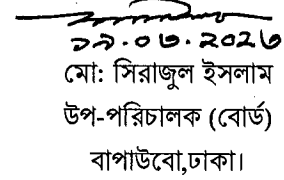 ১৯.০৩.২০২৩
মো: সিরাজুল ইসলাম
উপ-পরিচালক (বোর্ড)
বাপাউবো,ঢাকা।